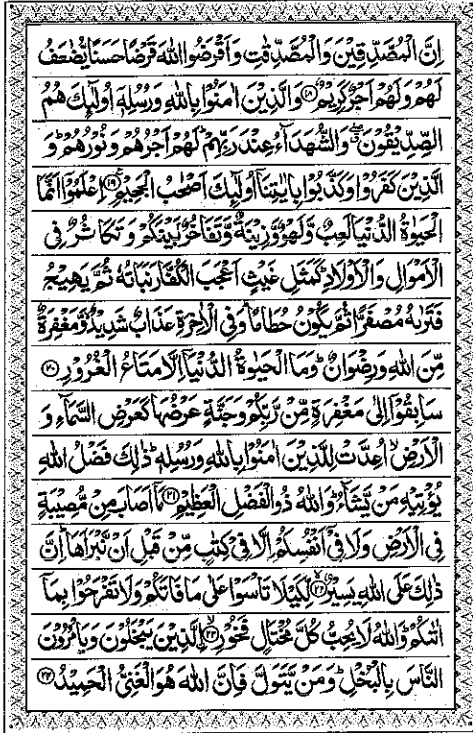 اِنَّ الْمُصَّدِّقِيْنَ وَالْمُصَّدِّقٰتِ وَاَقْرَضُوا اللّٰهَ قَرْضًا حَسَنًا يُّضٰعَفُ
لَهُمْ وَلَهُمْ اَجْرٌ كَرِيْمٌ ۝۱۸ وَالَّذِيْنَ اٰمَنُوْا بِاللّٰهِ وَرُسُلِهٖٓ اُولٰٓئِكَ هُمُ
الصِّدِّيْقُوْنَ ۖ وَالشُّهَدَآءُ عِنْدَ رَبِّهِمْ ؕ لَهُمْ اَجْرُهُمْ وَنُوْرُهُمْ ؕ وَ
الَّذِيْنَ كَفَرُوْا وَكَذَّبُوْا بِاٰيٰتِنَآ اُولٰٓئِكَ اَصْحٰبُ الْجَحِيْمِ ۝۱۹ اِعْلَمُوْٓا اَنَّمَا
الْحَيٰوةُ الدُّنْيَا لَعِبٌ وَّلَهْوٌ وَّزِيْنَةٌ وَّتَفَاخُرٌۢ بَيْنَكُمْ وَتَكَاثُرٌ فِي
الْاَمْوَالِ وَالْاَوْلَادِ ؕ كَمَثَلِ غَيْثٍ اَعْجَبَ الْكُفَّارَ نَبَاتُهٗ ثُمَّ يَهِيْجُ
فَتَرٰىهُ مُصْفَرًّا ثُمَّ يَكُوْنُ حُطَامًا ؕ وَفِي الْاٰخِرَةِ عَذَابٌ شَدِيْدٌ ۙ وَّمَغْفِرَةٌ
مِّنَ اللّٰهِ وَرِضْوَانٌ ؕ وَمَا الْحَيٰوةُ الدُّنْيَآ اِلَّا مَتَاعُ الْغُرُوْرِ ۝۲۰
سَابِقُوْٓا اِلٰى مَغْفِرَةٍ مِّنْ رَّبِّكُمْ وَجَنَّةٍ عَرْضُهَا كَعَرْضِ السَّمَآءِ وَ
الْاَرْضِ ۙ اُعِدَّتْ لِلَّذِيْنَ اٰمَنُوْا بِاللّٰهِ وَرُسُلِهٖ ؕ ذٰلِكَ فَضْلُ اللّٰهِ
يُؤْتِيْهِ مَنْ يَّشَآءُ ؕ وَاللّٰهُ ذُو الْفَضْلِ الْعَظِيْمِ ۝۲۱ مَآ اَصَابَ مِنْ مُّصِيْبَةٍ
فِي الْاَرْضِ وَلَا فِيْٓ اَنْفُسِكُمْ اِلَّا فِيْ كِتٰبٍ مِّنْ قَبْلِ اَنْ نَّبْرَاَهَا ؕ اِنَّ
ذٰلِكَ عَلَى اللّٰهِ يَسِيْرٌ ۝۲۲ لِّكَيْلَا تَاْسَوْا عَلٰى مَا فَاتَكُمْ وَلَا تَفْرَحُوْا بِمَآ
اٰتٰىكُمْ ؕ وَاللّٰهُ لَا يُحِبُّ كُلَّ مُخْتَالٍ فَخُوْرِ ۝۲۳ الَّذِيْنَ يَبْخَلُوْنَ وَيَاْمُرُوْنَ
النَّاسَ بِالْبُخْلِ ؕ وَمَنْ يَّتَوَلَّ فَاِنَّ اللّٰهَ هُوَ الْغَنِيُّ الْحَمِيْدُ ۝۲۴